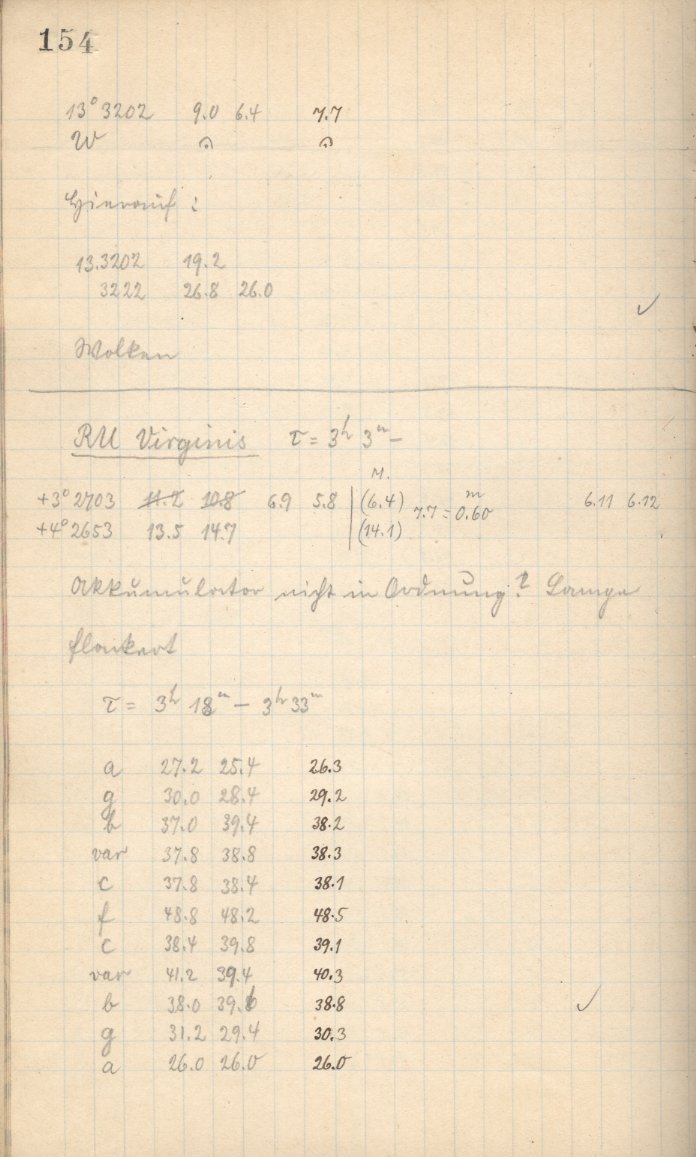 154
13° 3202 9.0 6.4 7.7
W
Hierauf:
13.3202 19.2
3222 26.8 26.0
✓
Wolken
RU Virginis τ = 3h 3m –
M.
+3° 2703 11.2 10.8 6.9 5.8 (6.4) 7.7 = 0.60m 6.11 6.12
+4° 2653 13.5 14.7 (14.1)
Akkumulator nicht in Ordnung? Lampe
flackert
τ = 3h 18m – 3h 33m
a 27.2 25.4 26.3
g 30.0 28.4 29.2
b 37.0 39.4 38.2
var 37.8 38.8 38.3
c 37.8 38.4 38.1
f 48.8 48.2 48.5
c 38.4 39.8 39.1
var 41.2 39.4 40.3
b 38.0 39.6 38.8 ✓
g 31.2 29.4 30.3
a 26.0 26.0 26.0